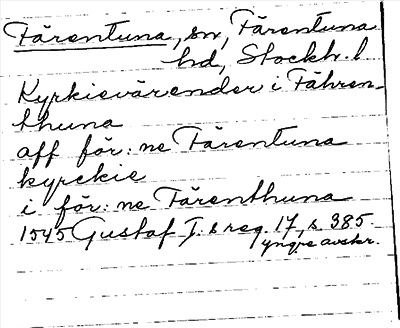 Färentuna, sn, Färentuna
hd, Stockh. l
Kyrkievärender i Fähren-
thuna
aff för: ne Färentuna
kyrckie
i för: ne Färenthuna
1545 Gustaf I:s reg. 17, s. 385.
yngre avskr.